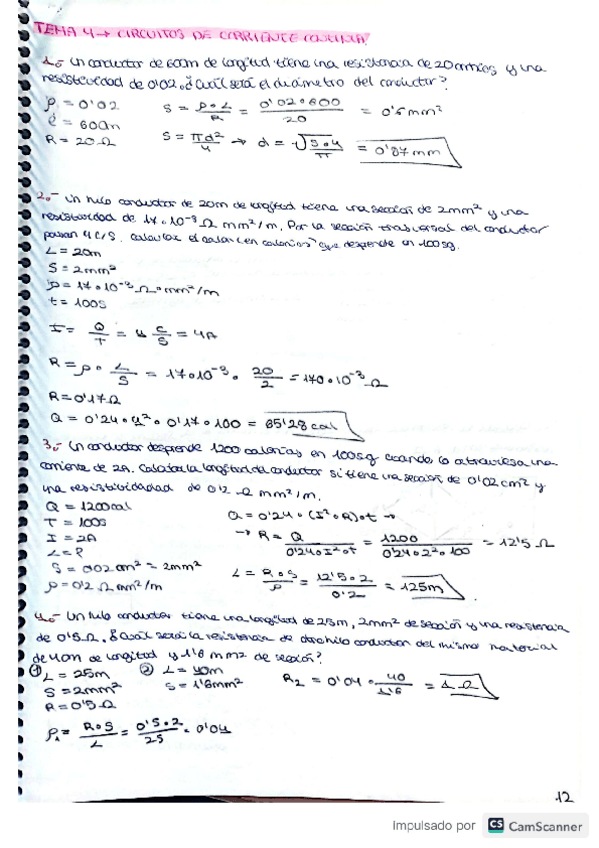 TEMA 4 → CIRCUITOS DE CORRIENTE CONTINUA
1.- Un conductor de 600m de longitud tiene una resistencia de 20 ohmios y una
resistividad de 0'02. ¿Cuál será el diámetro del conductor?
ρ = 0'02
ℓ = 600m
R = 20 Ω
S = ρ·L / R = 0'02·600 / 20 = 0'6 mm²
S = πd² / 4 → d = √(S·4 / π) = 0'87 mm
2.- Un hilo conductor de 20m de longitud tiene una sección de 2mm² y una
resistividad de 17·10⁻³ Ω mm²/m. Por la sección trasversal del conductor
pasan 4 C/S. Calcular el calor (en calorías) que desprende en 100sg.
L = 20m
S = 2mm²
ρ = 17·10⁻³ Ω·mm²/m
t = 100s
I = Q / T = 4 C/S = 4A
R = ρ · L / S = 17·10⁻³ · 20 / 2 = 170·10⁻³ Ω
R = 0'17Ω
Q = 0'24 · 4² · 0'17 · 100 = 65'28 cal
3.- Un conductor desprende 1200 calorías en 100sg cuando lo atraviesa una
corriente de 2A. Calcular la longitud del conductor si tiene una sección de 0'02 cm² y
una resistividad de 0'2 Ω mm²/m.
Q = 1200cal
T = 100s
I = 2A
L = ?
S = 0'02 cm² = 2mm²
ρ = 0'2 Ω mm²/m
Q = 0'24 · (I² · R) · t →
→ R = Q / 0'24·I²·t = 1200 / 0'24·2²·100 = 12'5 Ω
L = R·S / ρ = 12'5·2 / 0'2 = 125m
4.- Un hilo conductor tiene una longitud de 25m, 2mm² de sección y una resistencia
de 0'5 Ω, ¿Cuál será la resistencia de otro hilo conductor del mismo material
de 40m de longitud y 1'6 mm2 de sección?
① L = 25m
S = 2mm²
R = 0'5 Ω
② L = 40m
S = 1'6mm²
R₂ = 0'04 · 40 / 1'6 = 1 Ω
ρ₁ = R·S / L = 0'5·2 / 25 = 0'04
12
Impulsado por CS CamScanner